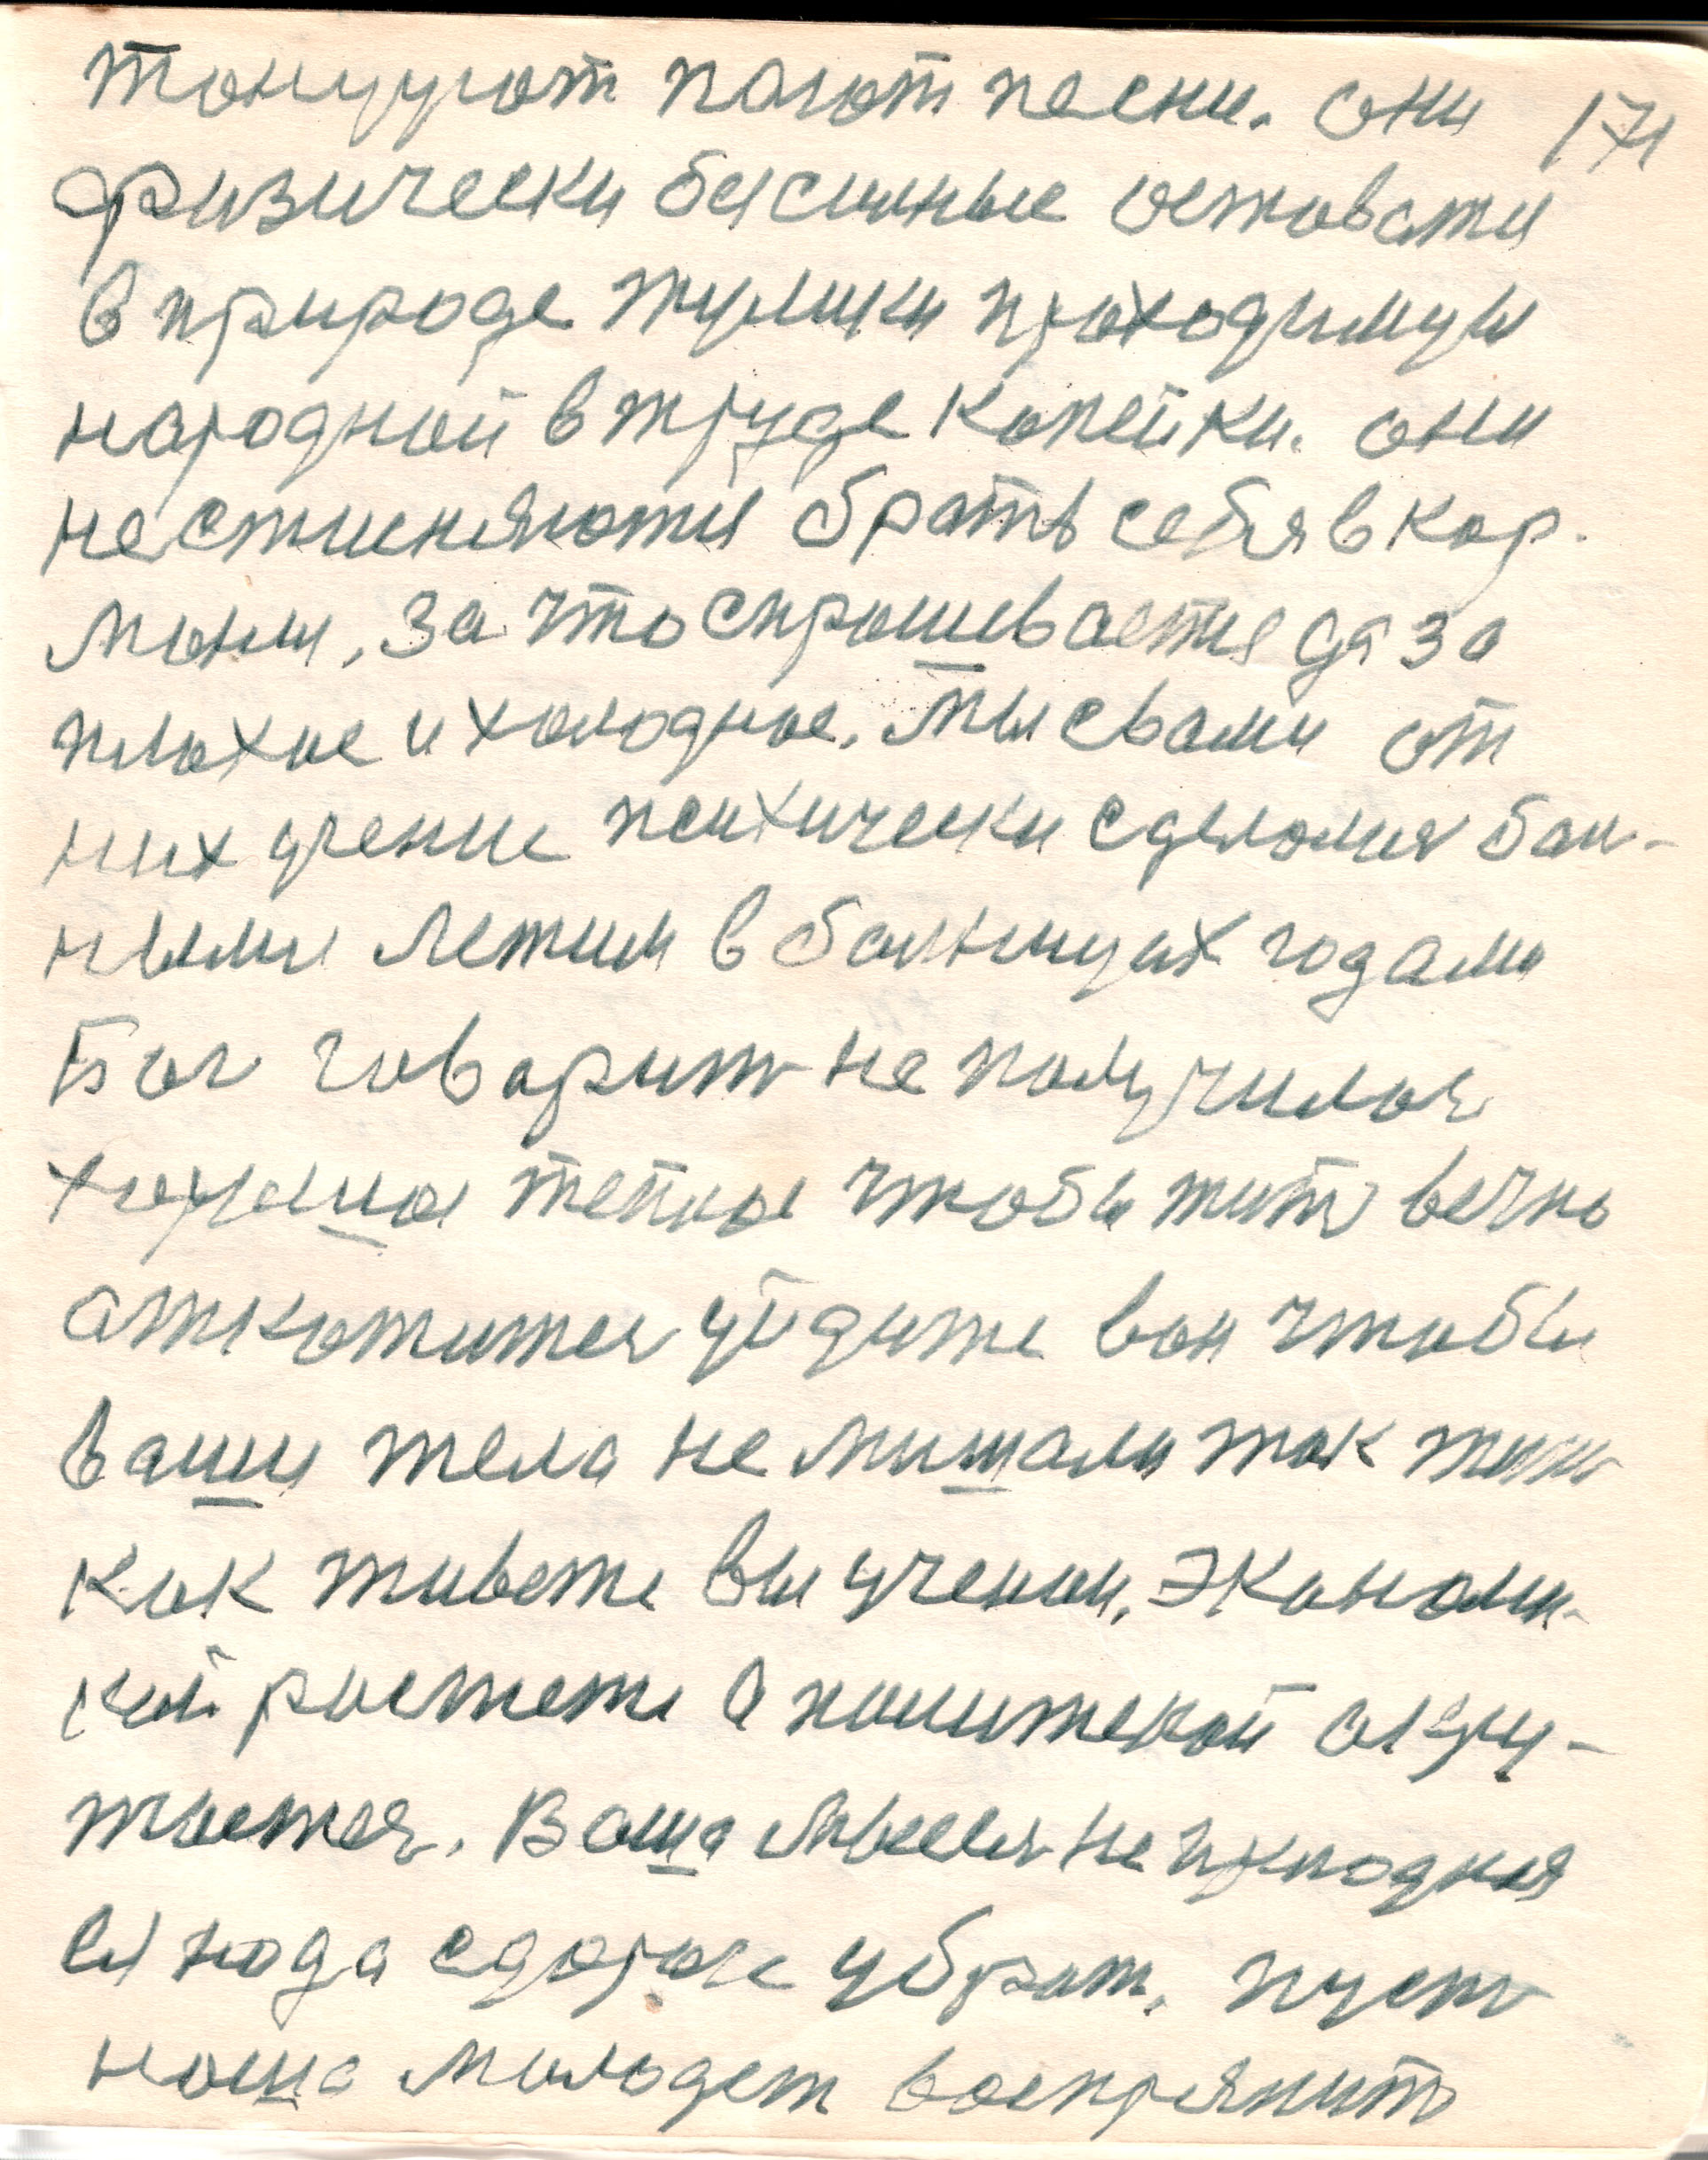 тонцуют поют песни. они 171
физически бессилные оставати
в природе жулики проходимцы
народной в труде копейки. они
не стисняются брать себя в кар-
мони, за что спрошивается да за
плохое и холодное. Мы с вами от
них учение психически сделолися бол-
ными лежим в болницах годами
Бог говорит не получилос
хорошое теплое чтобы жить вечно
откотитес уйдите вон чтобы
ваши тела не мишали так жить
как живете вы ученои, Экономи-
кой ростете а политекой
Ваша мысель не природная
ей нада с дороги убрат, пуст
наша молодеж воспрянить